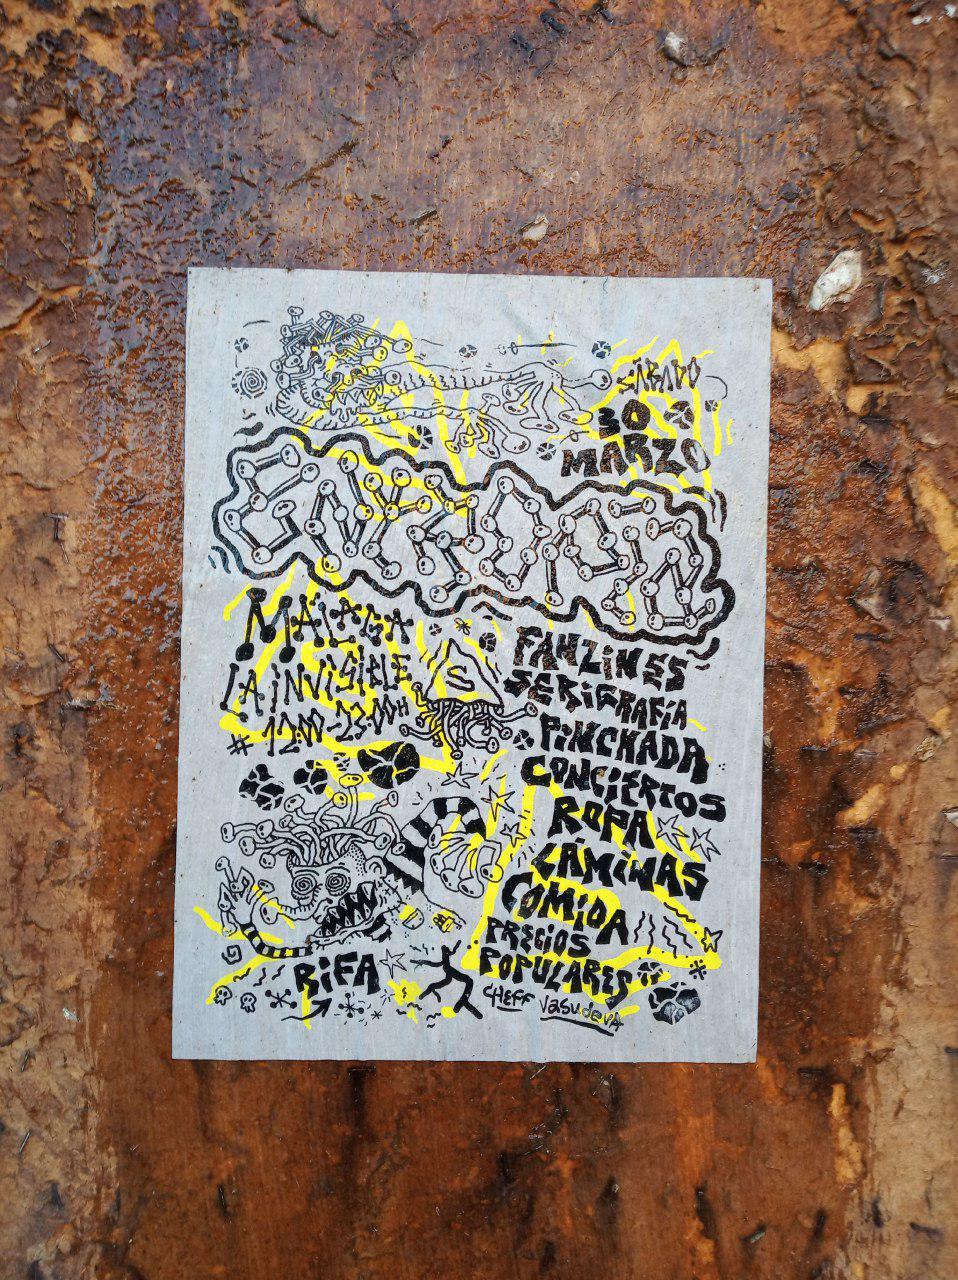 SÁBADO
30
MARZO
MÁLAGA
LA INVISIBLE
12:00-23:00H
FANZINES
SERIGRAFÍA
PINCHADA
CONCIERTOS
ROPA
LÁMINAS
COMIDA
PRECIOS
POPULARES
RIFA
CHEFF
VasudevA